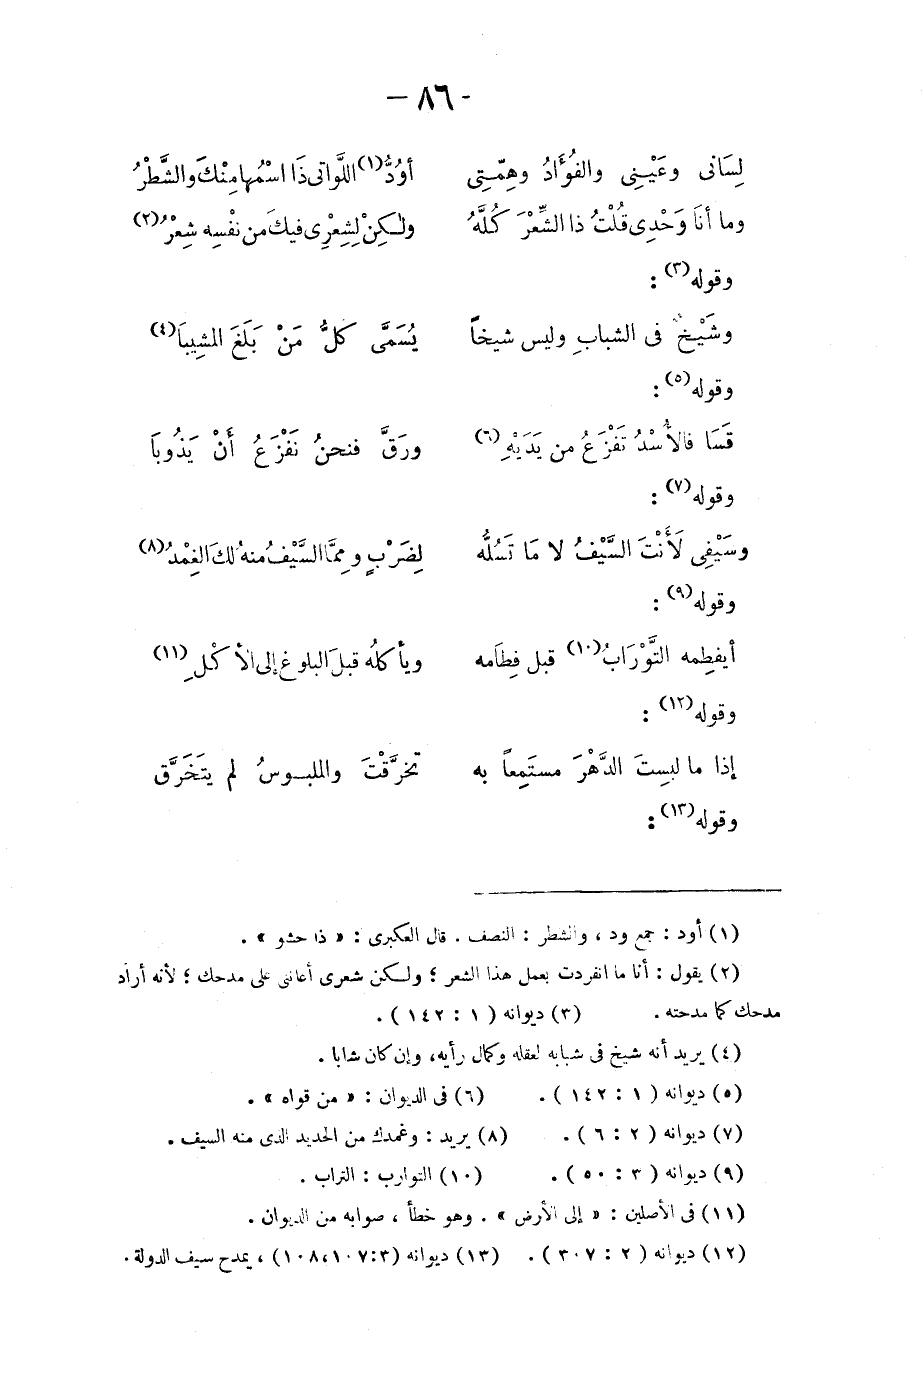 - ٨٦ -
لِسَانى وعَيْنِى والفُؤَادُ وهِمّتِى أوُدُّ(١) اللَّواتى ذَا اسْمُها مِنْكَ والشَّطْرُ
وما أنَا وَحْدِى قُلْتُ ذا الشِّعْرَ كُلَّهُ ولٰكِنْ لِشِعْرِى فيكَ من نفْسِه شِعْرُ(٢)
وقوله(٣) :
وشَيْخٌ فى الشبابِ وليس شيخاً يُسَمَّى كلُّ مَنْ بَلَغَ المشِيبَا(٤)
وقوله(٥) :
قَسَا فالأُسْدُ تَفْزَعُ من يَدَيْهِ(٦) ورَقَّ فنحنُ نَفْزَعُ أَنْ يَذُوبَا
وقوله(٧) :
وسَيْفِى لَأَنْتَ السَّيْفُ لا مَا تَسُلُّه لِضَرْبٍ ومِمَّا السَّيْفُ منهُ لكَ الغِمْدُ(٨)
وقوله(٩) :
أيفطِمه التَّوْرَابُ(١٠) قبل فِطَامه ويأكلُه قبلَ البلوغ إلى الأكْلِ(١١)
وقوله(١٢) :
إذا ما لبِستَ الدَّهْرَ مستَمِعاً به تخرَّقْتَ والملبوسُ لم يتَخَرَّق
وقوله(١٣) :
(١) أود : جمع ود ، والشطر : النصف . قال العكبرى : « ذا حشو » .
(٢) يقول : أنا ما انفردت بعمل هذا الشعر ؛ ولكن شعرى أعاننى على مدحك ؛ لأنه أراد
مدحك كما مدحته . (٣) ديوانه ( ١ : ١٤٢ ) .
(٤) يريد أنه شيخ فى شبابه لعقله وكمال رأيه، وإن كان شابا .
(٥) ديوانه ( ١ : ١٤٢ ) . (٦) فى الديوان : « من قواه » .
(٧) ديوانه ( ٢ : ٦ ) . (٨) يريد : وغمدك من الحديد الذى منه السيف .
(٩) ديوانه ( ٣ : ٥٠ ) . (١٠) التوارب : التراب .
(١١) فى الأصلين : « إلى الأرض » . وهو خطأ ، صوابه من الديوان .
(١٢) ديوانه ( ٢ : ٣٠٧ ) . (١٣) ديوانه (٣:١٠٧،١٠٨) ، يمدح سيف الدولة .